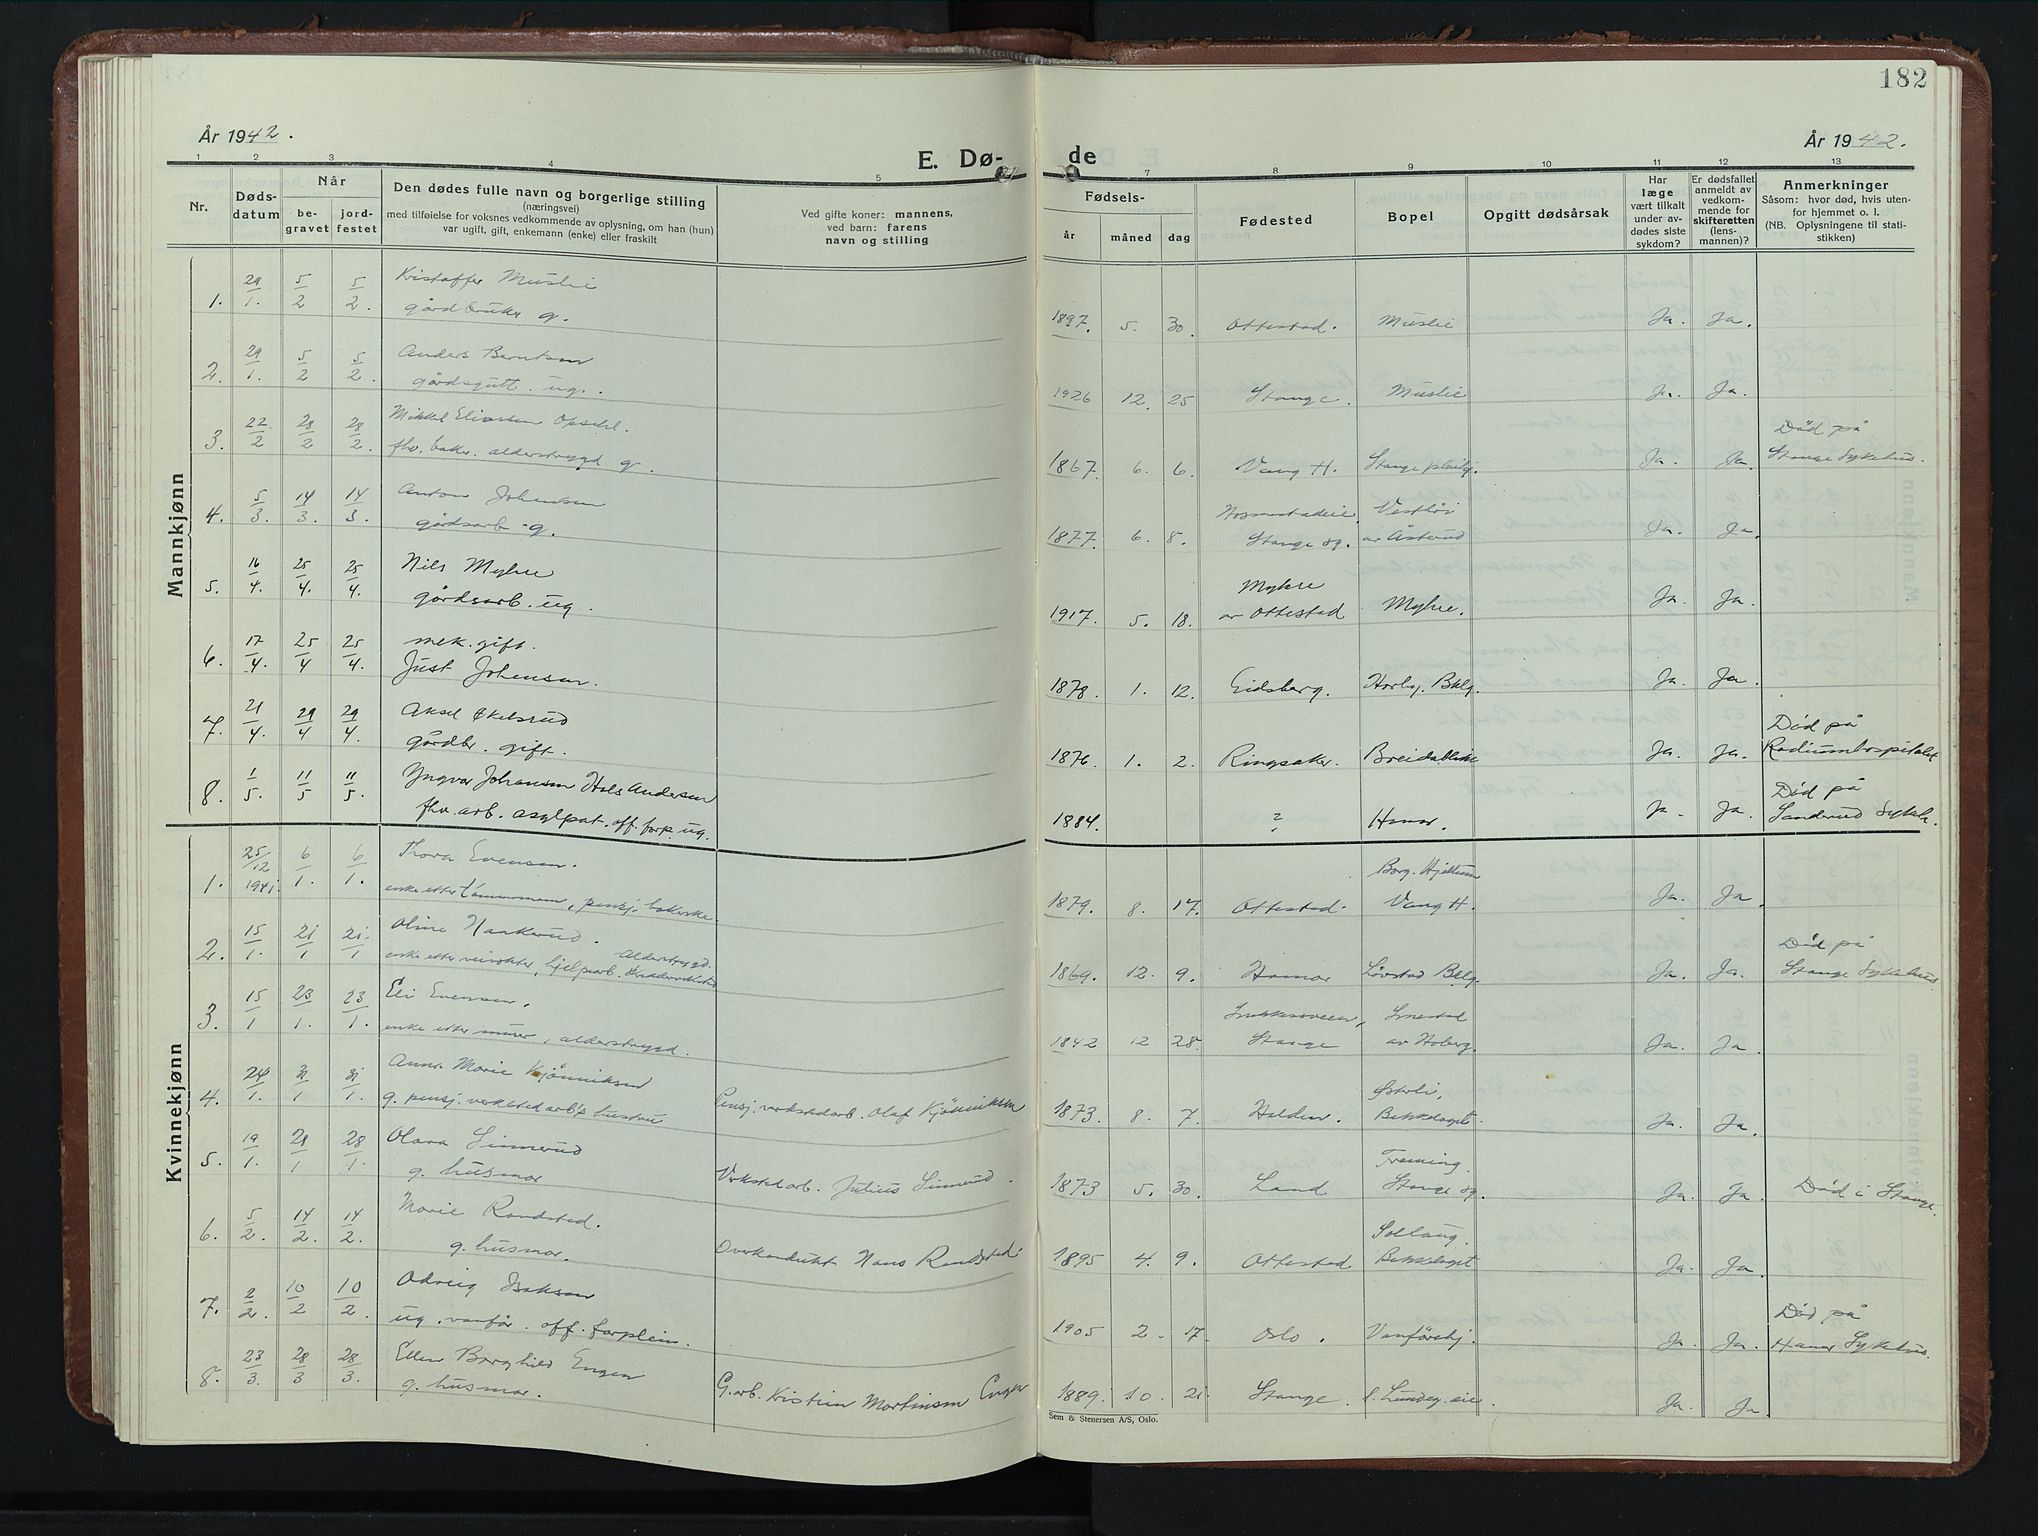 182
År 1942.
År 1942.
E. Dø-
de
1 2 3 4 5
7 8 9 10 11 12 13
Nr.
Døds-
datum
Når
be-
gravet
jord-
festet
Den dødes fulle navn og borgerlige stilling
(næringsvei)
med tilføielse for voksnes vedkommende av oplysning, om han (hun)
var ugift, gift, enkemann (enke) eller fraskilt
Ved gifte koner: mannens,
ved barn: farens
navn og stilling
Fødsels-
år måned dag
Fødested
Bopel
Opgitt dødsårsak
Har
læge
vært tilkalt
under av-
dødes siste
sykdom?
Er dødsfallet
anmeldt av
vedkom-
mende for
skifteretten
(lens-
mannen)?
Anmerkninger
Såsom: hvor død, hvis uten-
for hjemmet o. l.
(NB. Oplysningene til stati-
stikken)
Mannkjønn
1. 29/1. 5/2 5/2. Kristoffer Muslie
gårdbruker g. 1897. 5. 30. Ottestad. Muslie Ja. Ja.
2. 29/1. 5/2 5/2. Anders Berntsen
gårdsgutt. ug. 1926 12. 25 Stange. Muslie Ja. Ja.
Død på
3. 22/2 28/2 28/2. Mikkel Eliassen Opsahl.
fhv. baker. alderstrygd g. 1867. 6. 6. Vang H. Stange pleiehj. Ja. Ja. Stange Sykehus.
4. 5/3. 14/3. 14/3. Anton Johansen
gårdsarb. g. 1877. 6. 8. Stange sg. av Åsterud Ja. Ja.
5. 16/4. 25/4. 25/4. Nils Myhre Myhre
gårdsarb. ug. 1917. 5. 18. av Ottestad Myhre. Ja. Ja.
6. 17/4. 25/4 25/4. mek. gift.
Just Johansen. 1878. 1. 12. Eidsberg. Bklg. Ja. Ja.
7. 21/4. 29/4 29/4. Aksel Ekelsrud Død på
gårdbr. gift. 1876. 1. 2. Ringsaker. Breidablikk Ja. Ja. Radiumhospitalet
8. 1/5. 11/5 11/5. Yngvar Johansen Hols Andersen Død på
fhv. arb. asylpat. off. forp. ug. 1884. ? Hamar. Ja. Ja. Sanderud Sykeh.
Kvinnekjønn
1. 25/12 1941. 6/1. 6/1. Thora Evensen. Borg. Hjellum
enke etter tømmermann, pensj. 1879. 8. 17. Ottestad. Vang H. Ja. Ja.
2. 15/1. 21/1 21/1 Oline Haakerud. alderstrygd. Død på
enke etter hjelpearb. 1869. 12. 9. Hamar Løvstad Bklg. Ja. Ja. Stange Sykehus
3. 15/1 23/1. 23/1. Eli Evensen. Imestad
enke etter murer, alderstrygd. 1842 12 28. Stange av Hoberg. Ja. Ja.
4. 24/1. 31/1 31/1. Anna Marie Kjönniksen Østerli,
g. pensj. verkstedarb's hustru Pensj. verkstedarb. Olaf Kjönniksen 1873. 8. 7. Halden. Bekkelaget. Ja. Ja.
5. 19/1. 28/1 28/1. Olava Linnerud Freming.
g. husmor Verkstedarb. Julius Linnerud. 1873 5. 30. Land Stange sg. Ja. Ja. Død i Stange.
6. 5/2. 14/2. 14/2. Marie Randstad. Solhaug.
g. husmor. Overkonduktør Hans Randstad. 1895 4. 9. Ottestad Bekkelaget Ja. Ja.
7. 2/2. 10/2 10/2. Odveig Isaksen Død på
ug. vanfør. off. forplein. 1905 2. 17. Oslo. Vanførehj. Ja. Ja. Hamar Sykehus.
8. 23/3. 28/3 28/3. Ellen Borghild Engen
g. husmor. G. arb. Kristian Martinsen Engen 1889. 10. 21. Stange. Ja. Ja.
Sem & Stenersen A/S, Oslo.